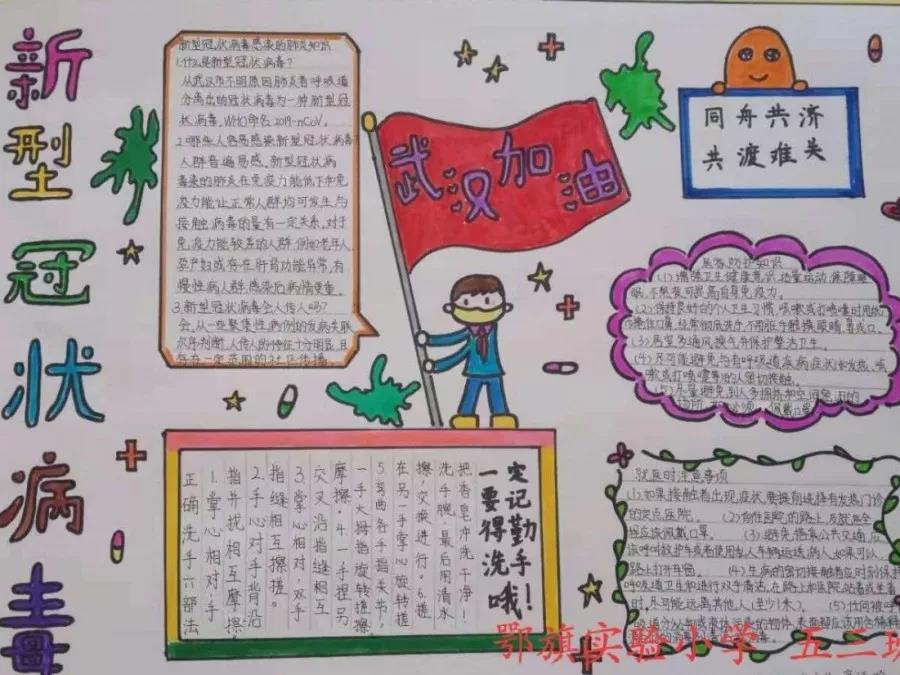 新型冠状病毒
新型冠状病毒感染的肺炎知识
1.什么是新型冠状病毒？
从武汉市不明原因肺炎者呼吸道
分离出的冠状病毒为一种新型冠
状病毒，WHO命名2019-nCoV。
2.哪些人容易感染新型冠状病毒
人群普遍易感，新型冠状病
毒染的肺炎在免疫力能低下和免
疫力能让正常人群均可发生，与
接触病毒的量有一定关系。对于
免疫力能较差的人群，例如老年人、
孕产妇或存在肝肾功能异常，有
慢性病人群，感染后病情更重。
3.新型冠状病毒会人传人吗？
会，从一些聚集性病例的发病关联
次序判断，人传人的特征十分明显，且
存在一定范围的社区传播
武汉加油
同舟共济
共渡难关
居家防护知识
(1)增强卫生健康意识，适量运动，保障睡
眠，不熬夜可提高自身免疫力。
(2)保持良好的个人卫生习惯，咳嗽或打喷嚏时用纸
巾掩住口鼻，经常彻底洗手，不用脏手触摸眼睛、鼻或口。
(3)居室多通风换气并保护整洁卫生。
(4)尽可能避免与有呼吸道疾病症状(如发热、咳
嗽或打喷嚏等)的人密切接触。
(5)尽量避免到人多拥挤和空间密闭的
一定记
要得勤
洗手
哦！
把香皂冲洗干净！
洗手腕，最后用清水
擦，交换进行。6.搓
在另一手掌心旋转搓
5.弯曲各手指关节，
一手大拇指旋转搓擦
摩擦。4.一手握另
交叉沿指缝相互
3.掌心相对，双手
指缝相互擦搓。
2.手心对手背沿
指并拢相互摩擦
1.掌心相对，手
正确洗手六部法
就医时注意事项
(1)如果接触者出现症状，要提前选择有发热门诊
的定点医院。(2)前往医院的路上，及就医全
程应该佩戴口罩。(3)避免搭乘公共交通，应
该呼叫救护车或者使用私人车辆运送病人，如果可以，
路上打开车窗。(4)生病的密切接触者应时刻保持
呼吸道卫生和进行双手清洁。在路上和医院站着或坐着
时，尽可能远离其他人(至少1米)。(5)任何被呼
鄂旗实验小学 五三班